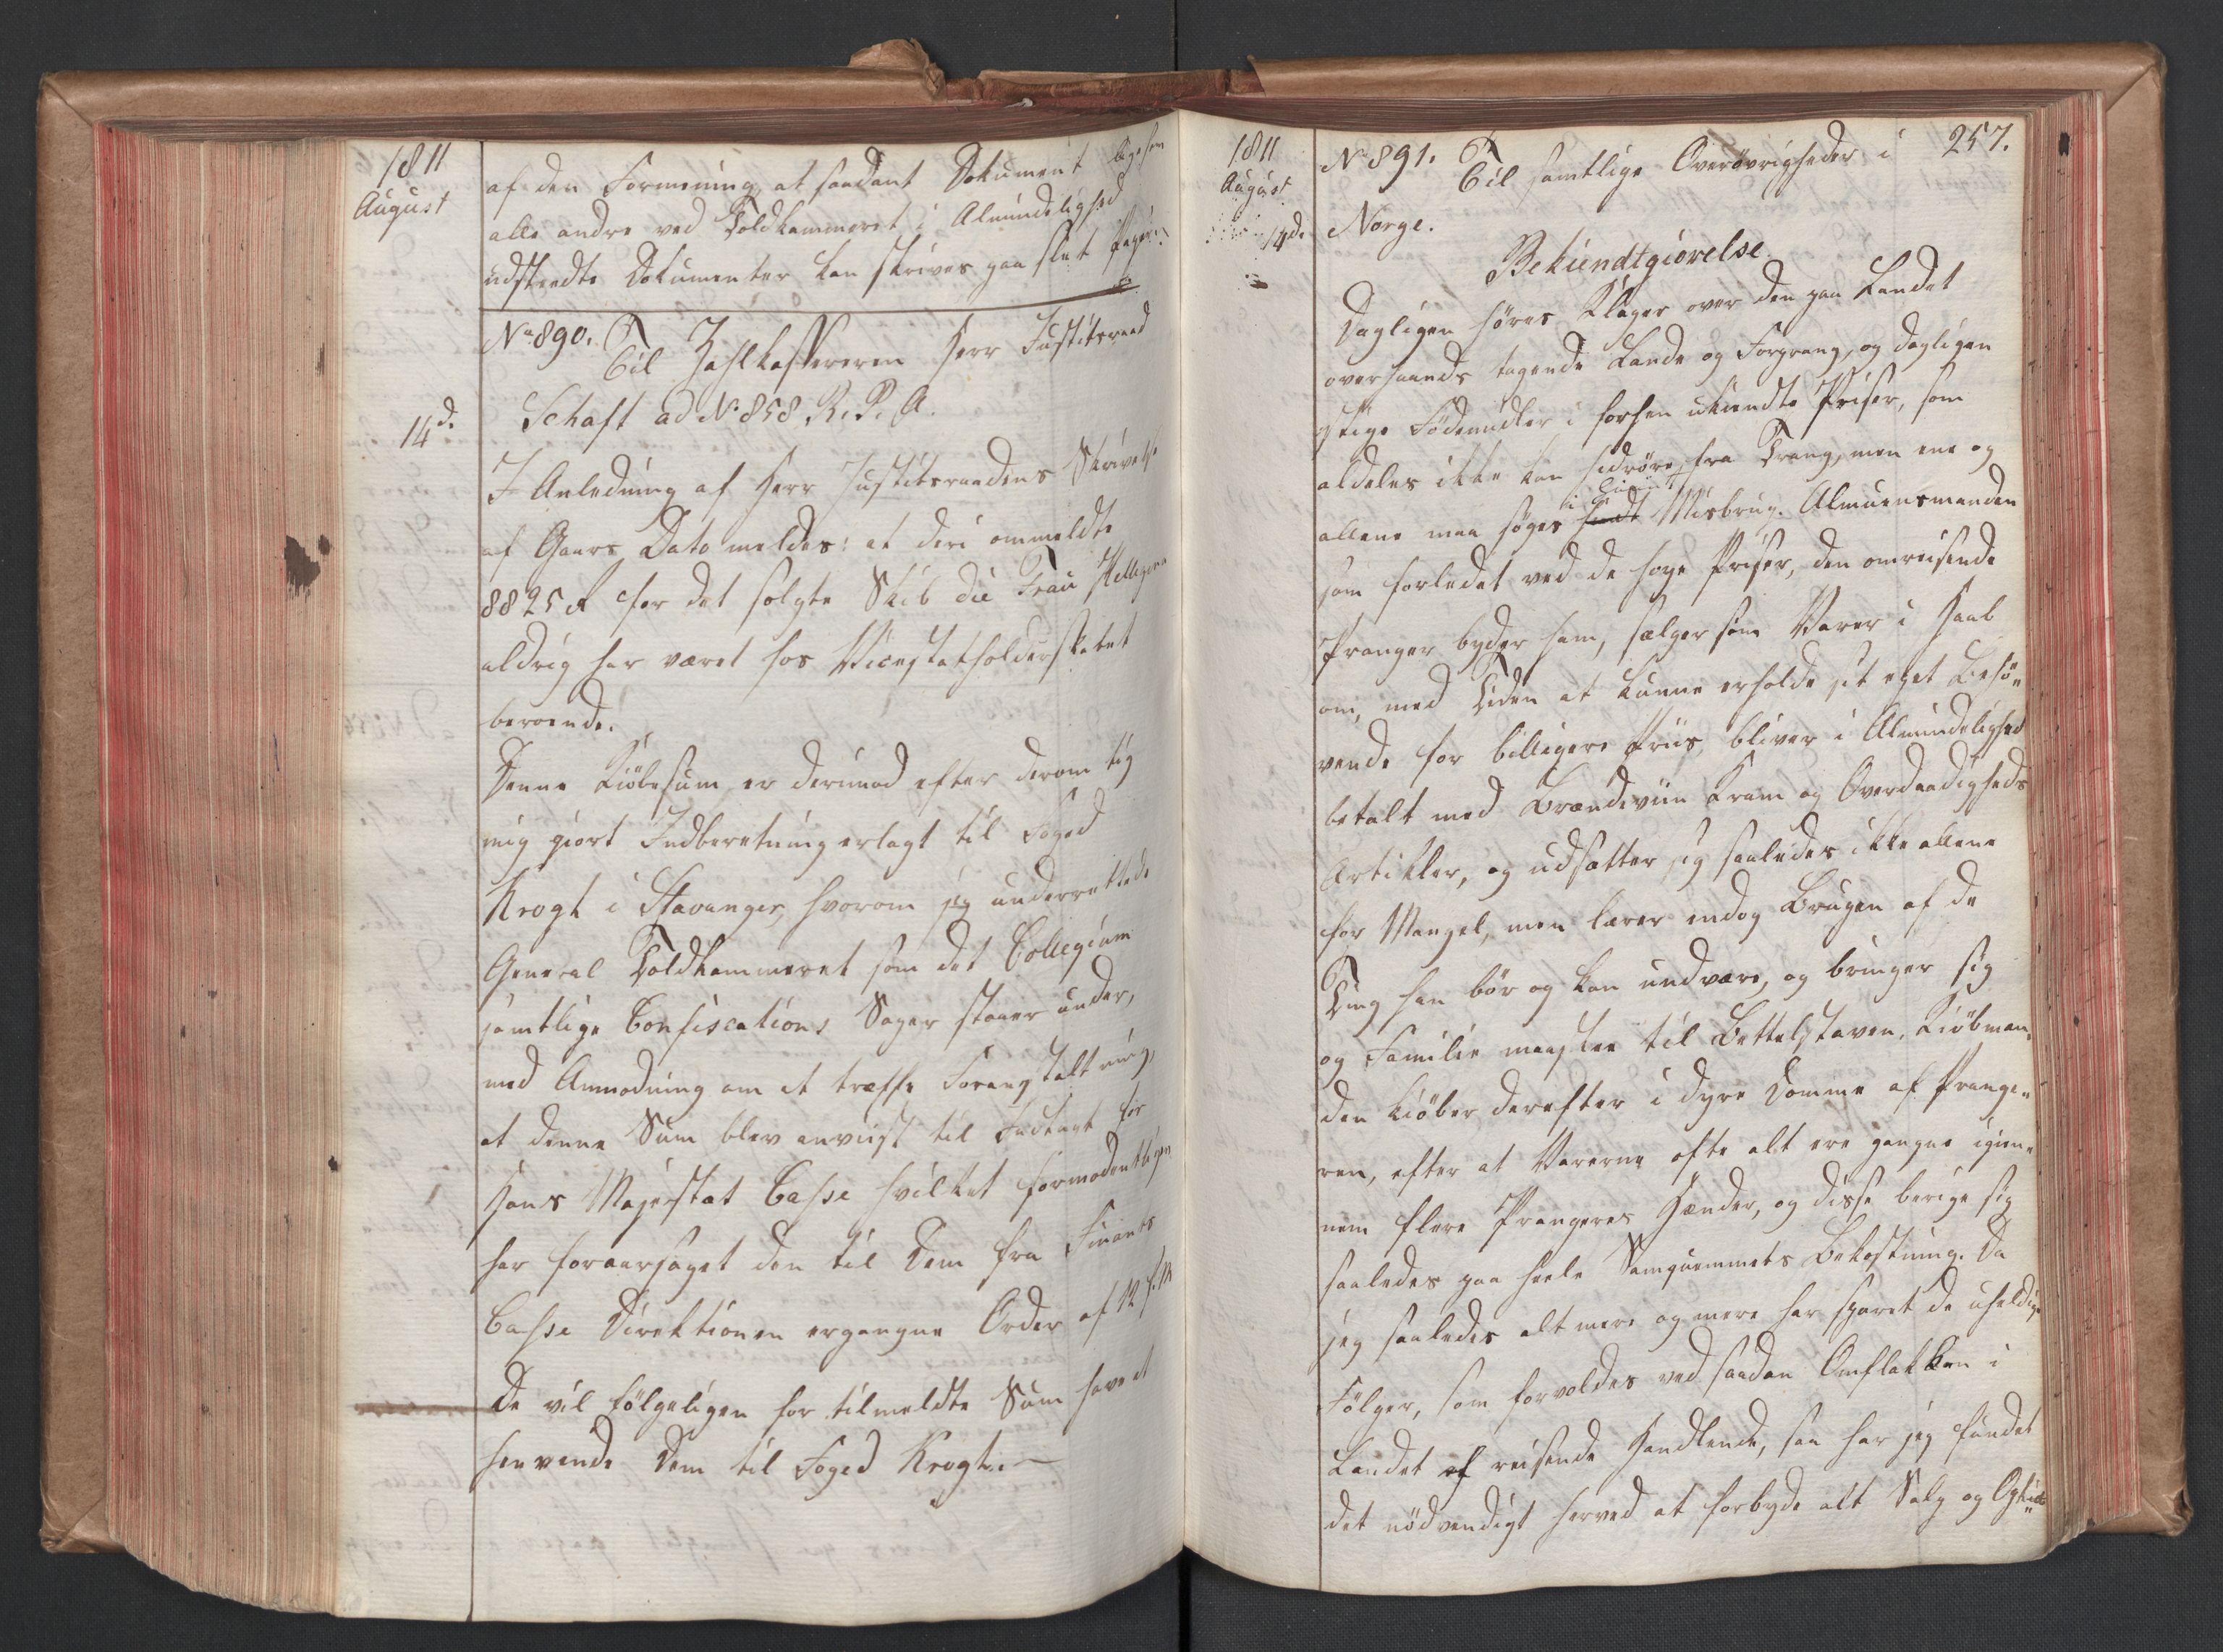 1811
August
af den Formening, at saadant Dokument ligesom
alle andre ved Toldkammeret i Almindelighed
udstædte Dokumenter kan skrives paa slet Papir.
No 890. Til Zahlkassereren Herr Justitsraad
14d. Schaft ad No 858 R. P. A.
I Anledning af Herr Justitsraadens Skrivelse
af Gaars Dato meldes: at deri ommeldte
8825 for det solgte Skib die Frau
aldrig har været hos Vicestatholderskabet
beroende.
Denne Kiöbesum er derimod efter derom til
mig giort Indberetning erlagt til Foged
Krogh i Stavanger, hvorom jeg underrettede
General Toldkammeret som det Collegium
samtlige Confiscations Sager staaer under,
med Anmodning om at træffe Foranstaltning,
at denne Sum blev anviist til Indtægt for
Hans Majestæt Casse hvilket formodentligen
har foraarsaget den til Dem fra Finants
Casse Direktionen ergangne Ordre af
De vil fölgeligen for tilmeldte Sum have at
henvende Dem til Foged Krogh.
1811
August
14d.
257.
No 891. Til samtlige Overøvrigheder i
Norge.
Bekiendtgiørelse
Dagligen höres Klager over den paa Landet
overhaands tagende Lande og Forprang, og dagligen
stige Födemidler i forhen ukiendte Priser, som
aldeles ikke kan hidröre fra Trang, men ene og
allene maa søges i Misbrug. Almuesmanden
som forledet ved de høye Priser, den omreisende
Pranger byder ham, sælger sine Varer i Haab
om, med Tiden at kunne erholde sit eget Behö-
vende for billigere Priis, bliver i Almindelighed
betalt med Brændeviin Kram og Overdaadigheds
Artikler, og udsætter sig saaledes ikke allene
for Mangel, men lærer endog Brugen af de
Ting han bör og kan undvære, og bringer sig
og Familie maaskee til Bettelstaven. Kiöbman-
den kiöber derefter i dyre Domme af Prange-
ren, efter at Varerne ofte alt ere gangne igien-
nem flere Prangeres Hænder, og disse berige sig
saaledes paa heele Samqvemmets Bekostning. Da
jeg saaledes alt mere og mere har sporet de uheldige
Fölger, som forvoldes ved saadan Omflakken i
Landet af reisende Handlende, saa har jeg fundet
det nödvendigt herved at forbyde alt Salg og Opkiöb